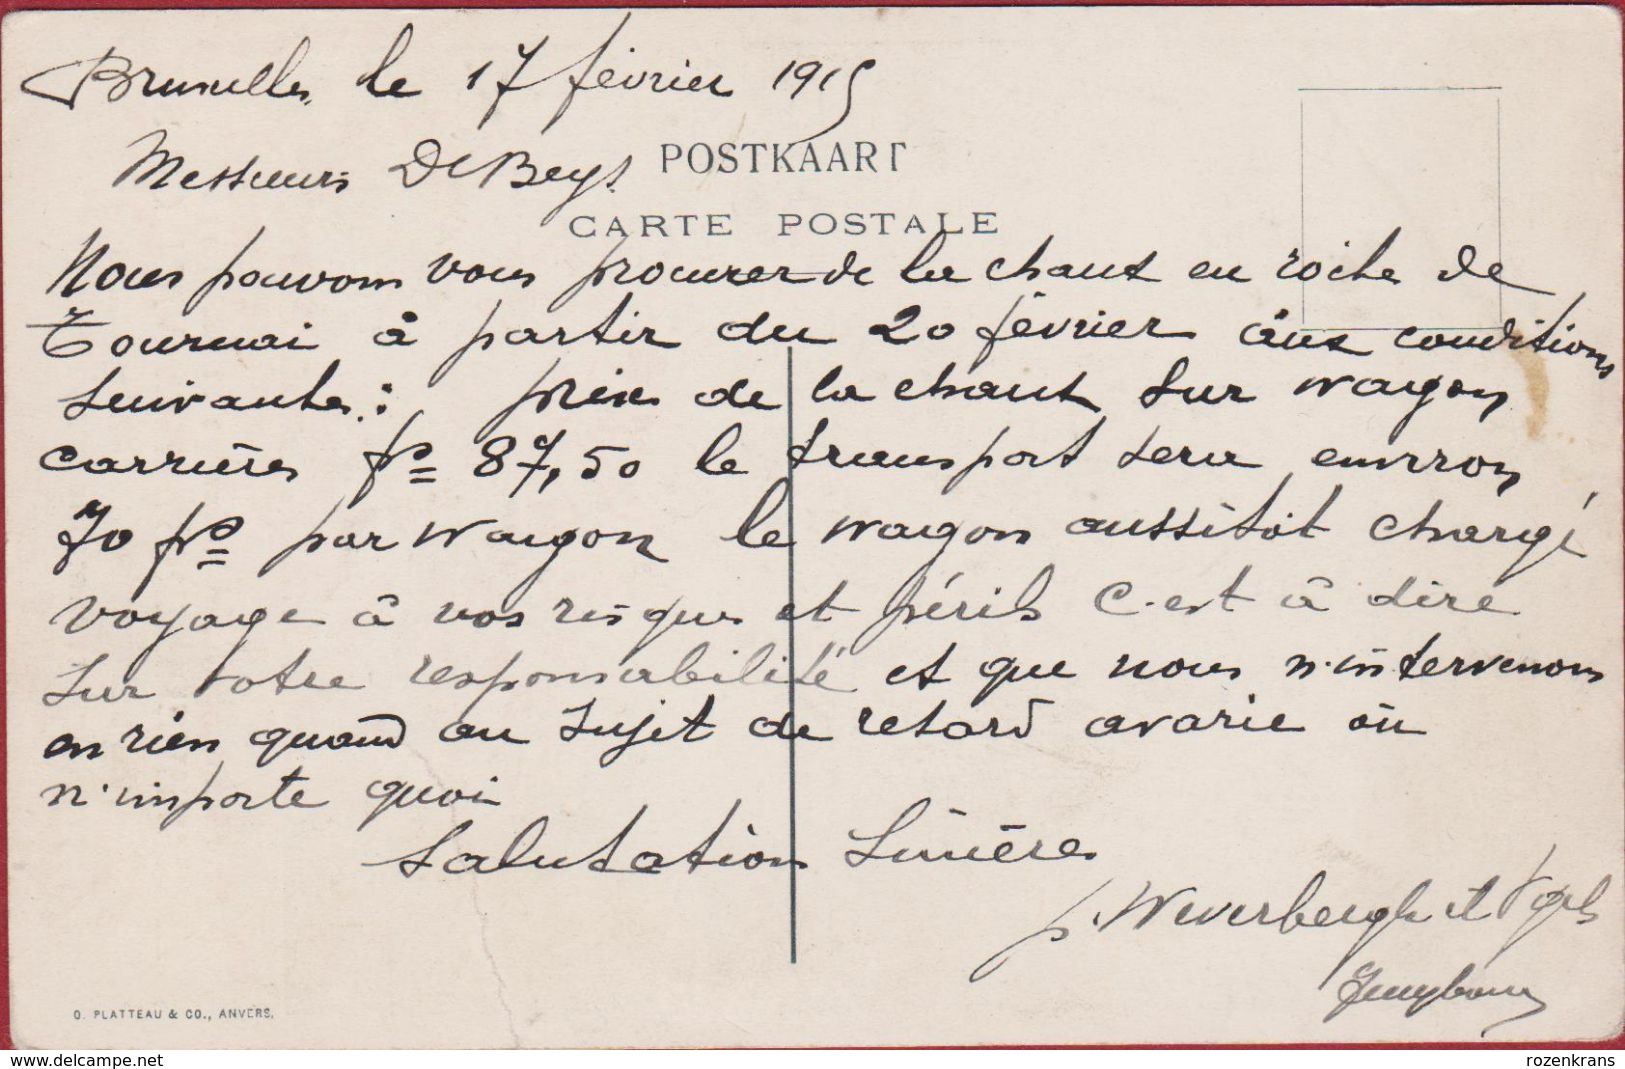 Bruxelles le 17 février 1915
Messieurs De Beys.
POSTKAART
CARTE POSTALE
Nous pouvons vous procurer de la chaux en roche de
Tournai à partir du 20 février aux conditions
suivantes: prix de la chaux sur wagon
carrières frs 87,50 le transport sera environ
70 frs par wagon le wagon aussitôt chargé
voyage à vos risques et périls c'est à dire
sur votre responsabilité et que nous n'intervenons
en rien quand au sujet de retard avarie ou
n'importe quoi
Salutation Sincères
p. Weverbergh et
O. PLATTEAU & CO., ANVERS.
www.delcampe.net
rozenkrans